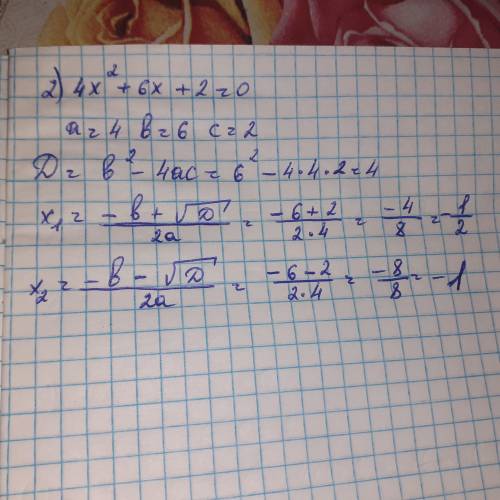 2) 4x² + 6x + 2 = 0
a = 4 b = 6 c = 2
D = b² - 4ac = 6² - 4·4·2 = 4
x₁ = (-b + √D)/2a = (-6+2)/2·4 = -4/8 = -1/2
x₂ = (-b - √D)/2a = (-6-2)/2·4 = -8/8 = -1